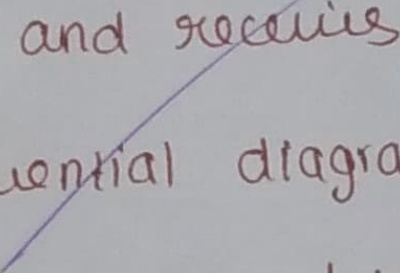 and receives
uential diagra